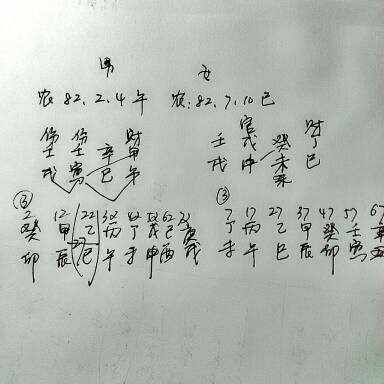 男 女
农 82.2.4 午 农:82.7.10 巳
伤 伤 财 官 财
壬 壬 辛 甲 壬 戊 癸 丁
戌 寅 巳 午 戌 申 未 巳
③ ③
2 12 22 32 42 52 62 7 17 27 37 47 57 67
癸 甲 乙 丙 丁 戊 己 庚 丁 丙 乙 甲 癸 壬 辛
卯 辰 巳 午 未 申 酉 戌 未 午 巳 辰 卯 寅 丑